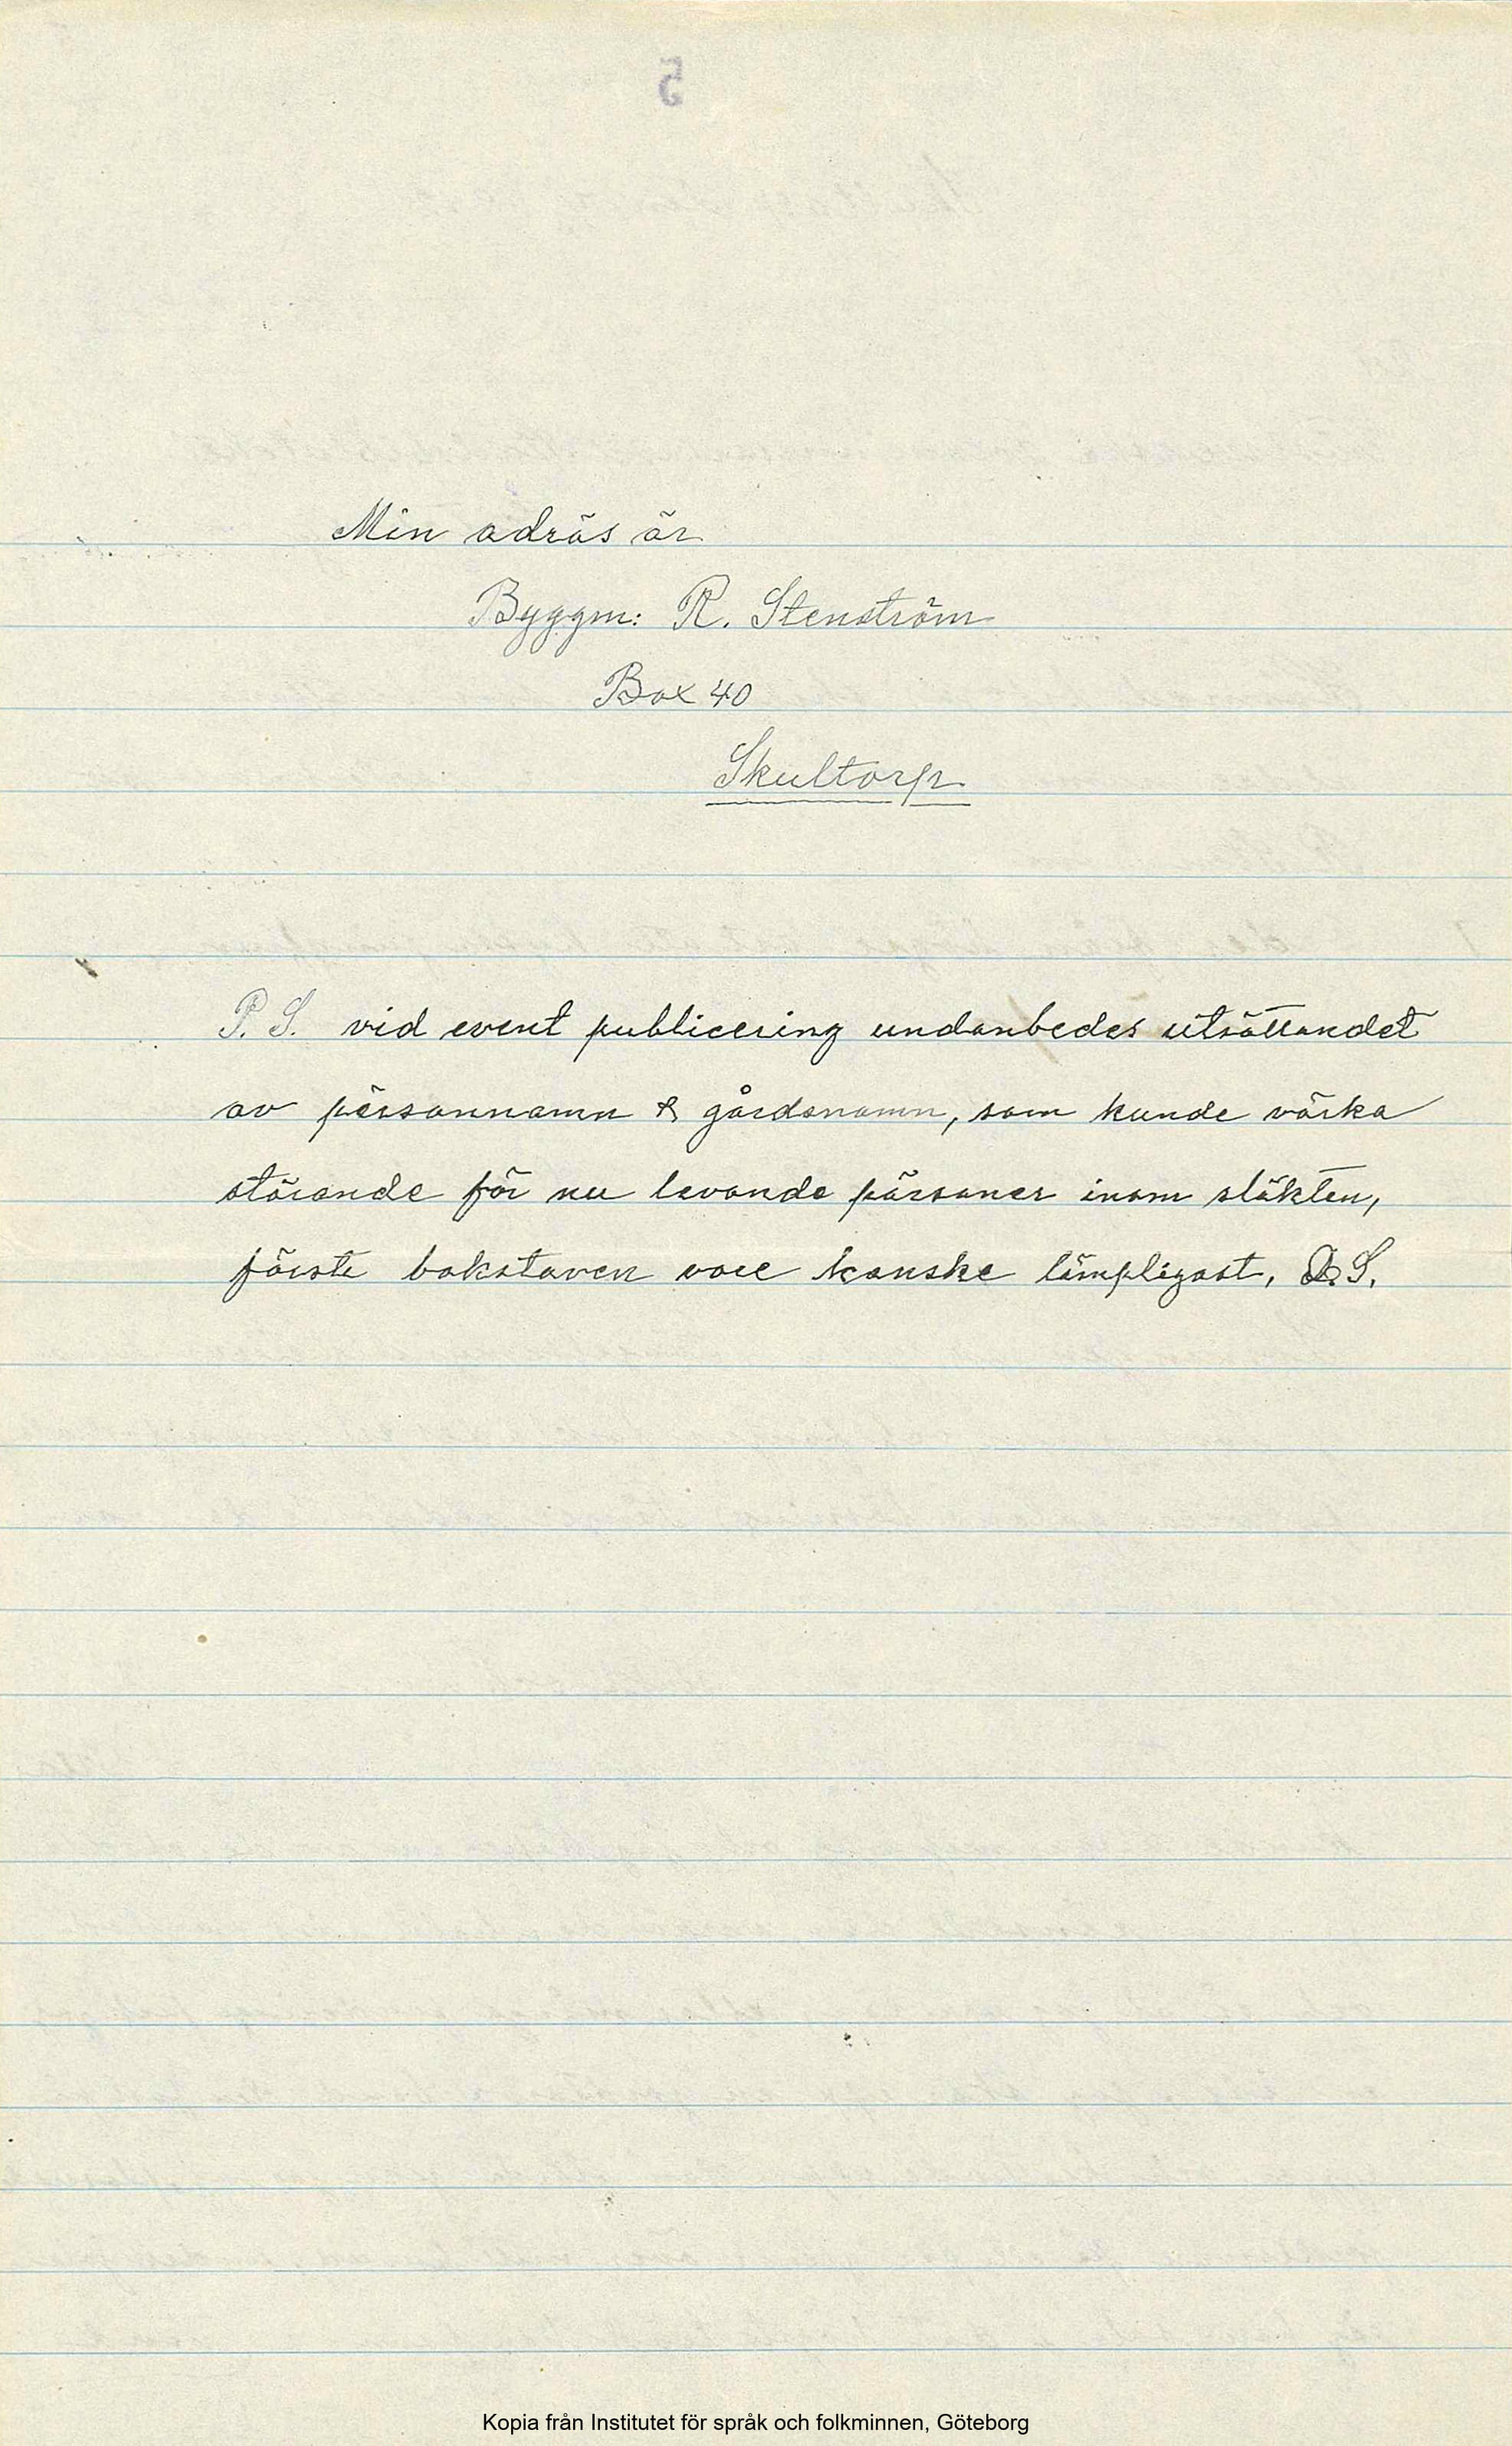 5
Min adräs är
Byggm: R. Stenström
Box 40
Skultorp
P. S. vid event publicering undanbedes utsättandet
av pärsonnamn & gårdsnamn, som kunde värka
störande för nu levande pärsoner inom släkten,
förste bokstaven vore kanske lämpligast, D. S.
Kopia från Institutet för språk och folkminnen, Göteborg